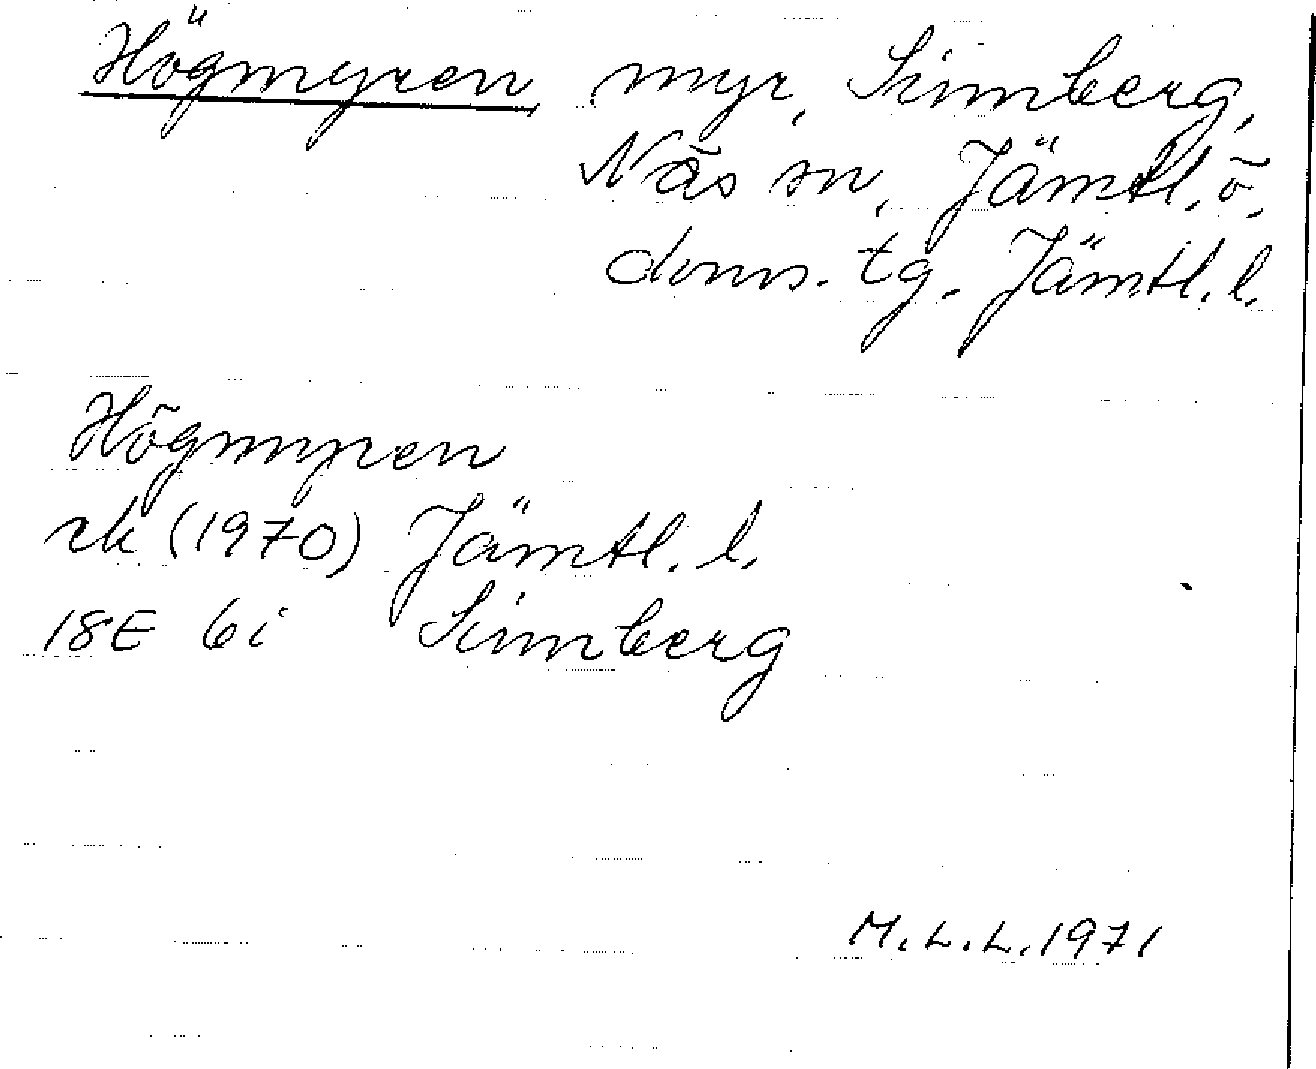 Högmyren myr, Sinnberg,
Näs sn, Jämtl. ö.
doms. tg. Jämtl. l.
Högmyren
rk (1970) Jämtl. l.
18E 6i Sinnberg
M.L.L. 1971